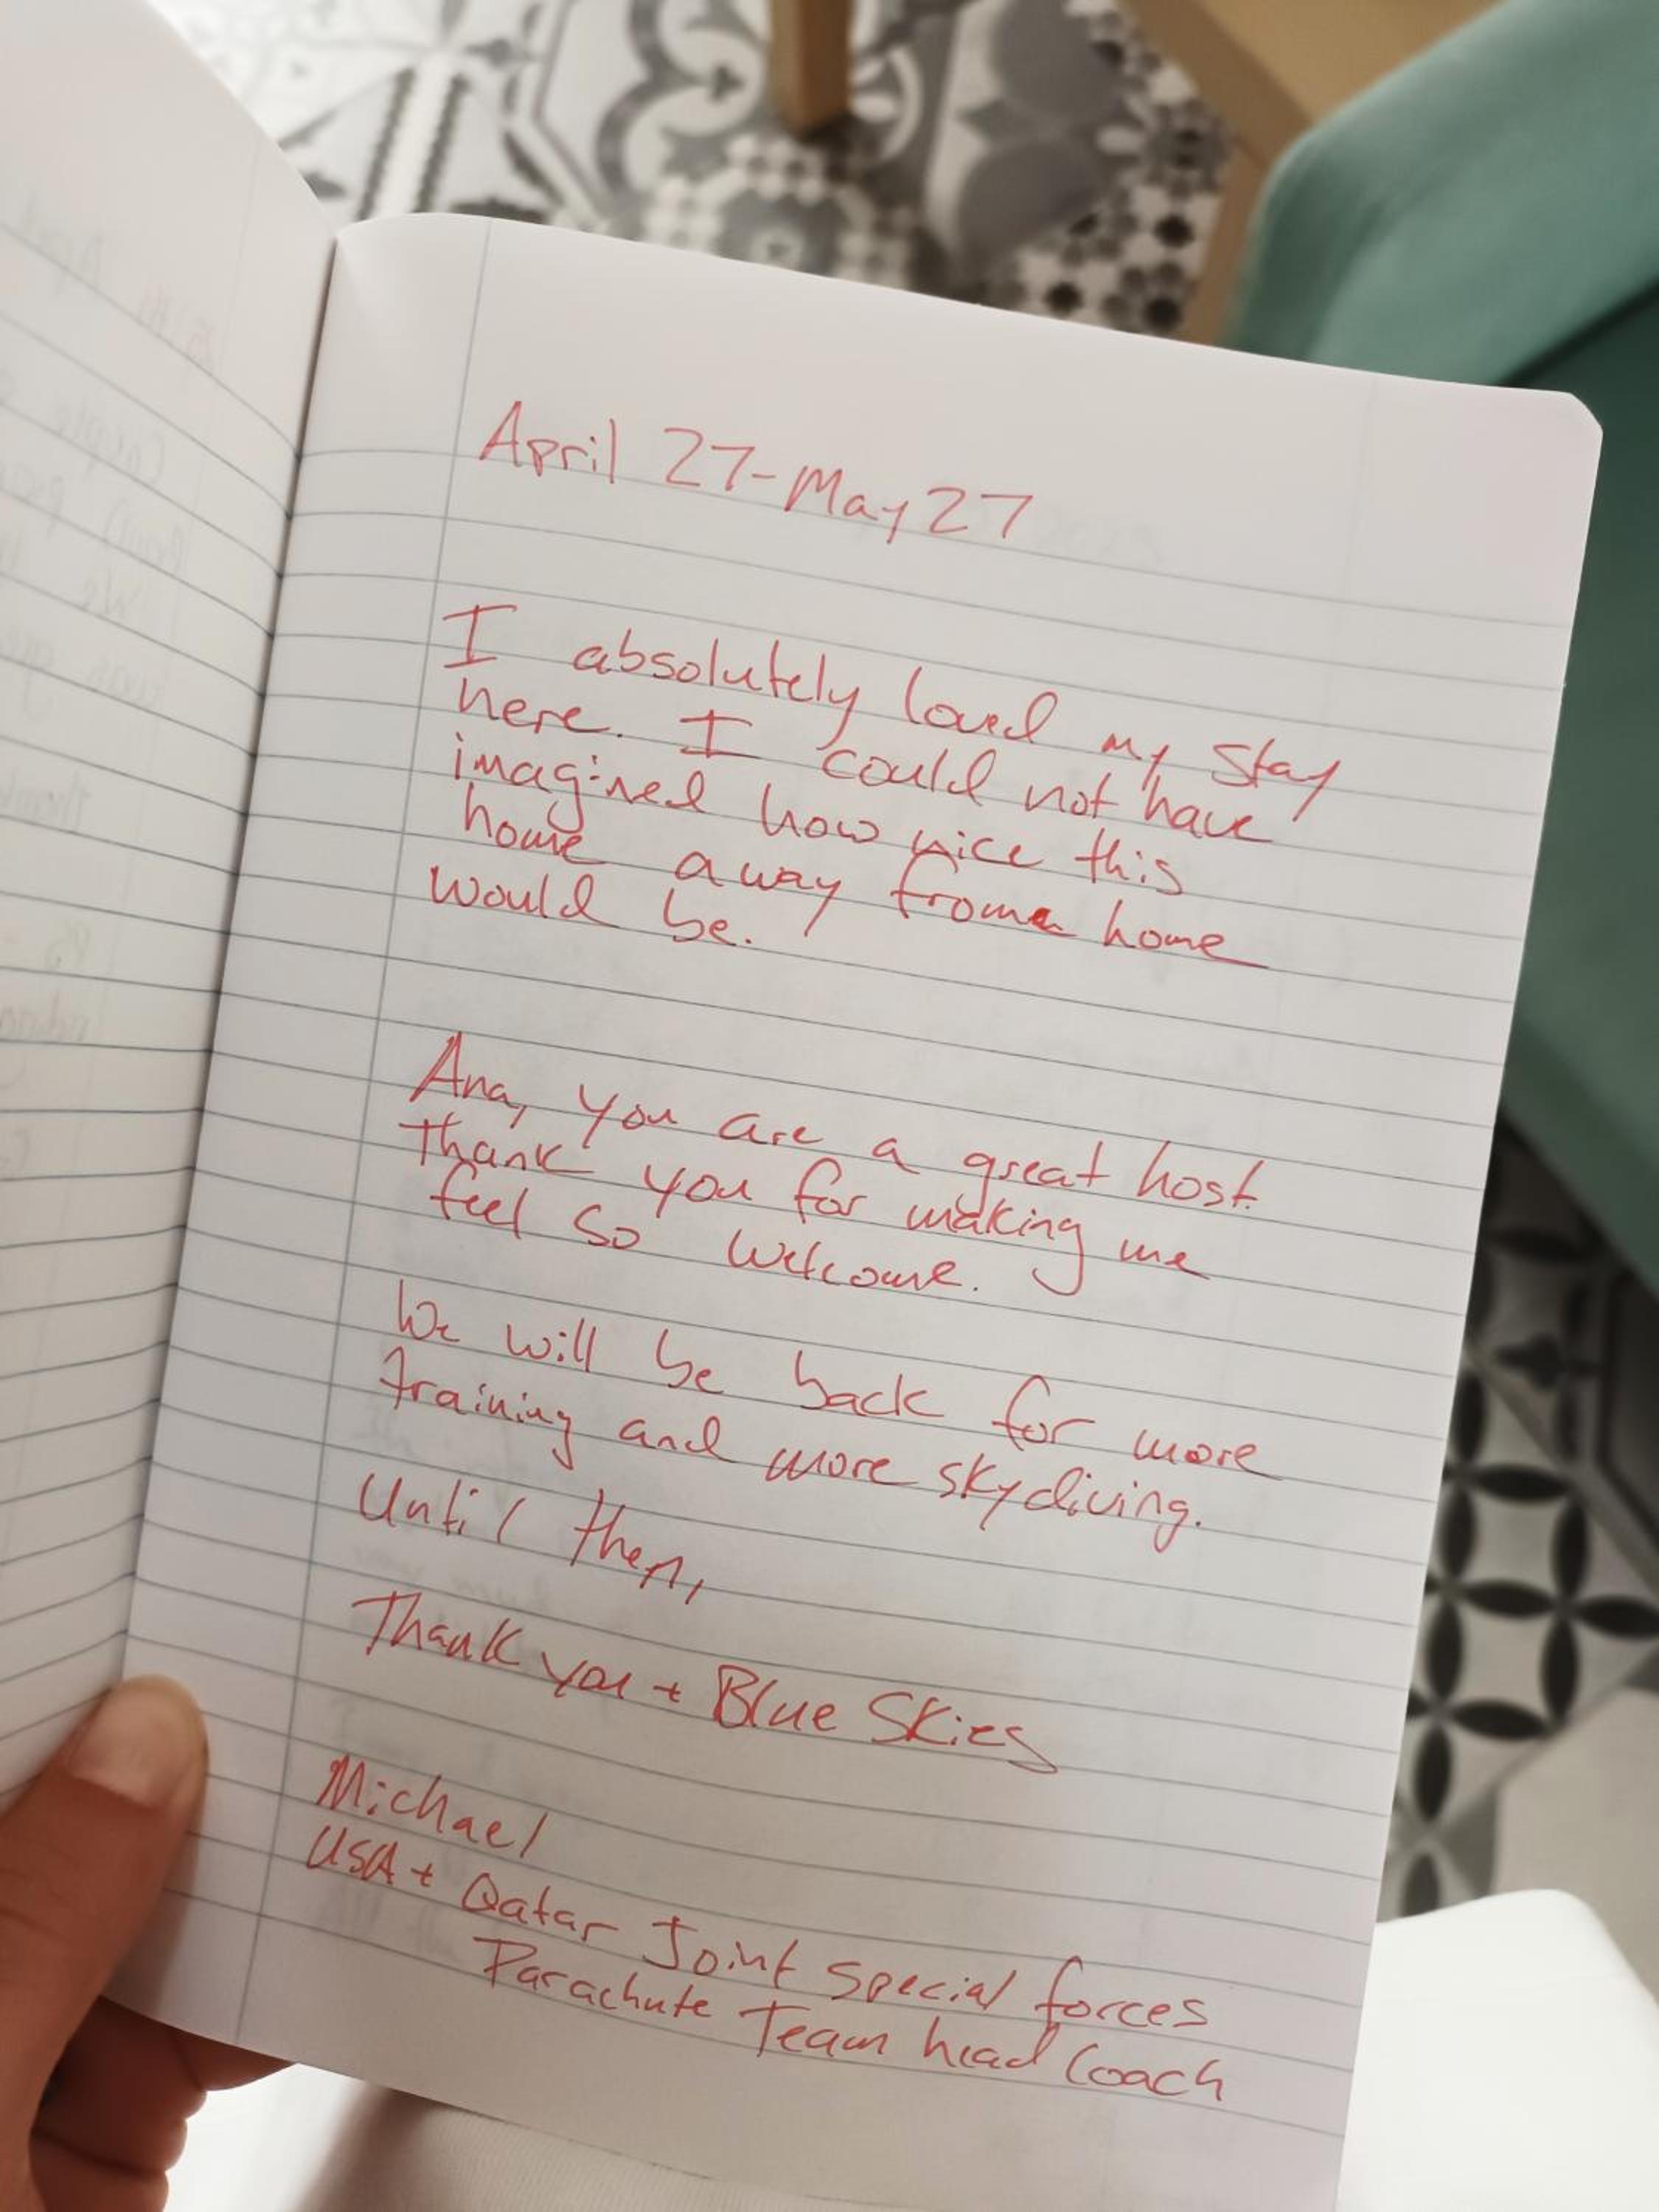 April 27-May 27
I absolutely loved my stay
here. I could not have
imagined how nice this
home away from home
would be.
Ana, you are a great host.
Thank you for making me
feel so welcome.
We will be back for more
training and more skydiving.
Until then,
Thank you + Blue Skies
Michael
USA + Qatar Joint Special forces
Parachute Team head Coach